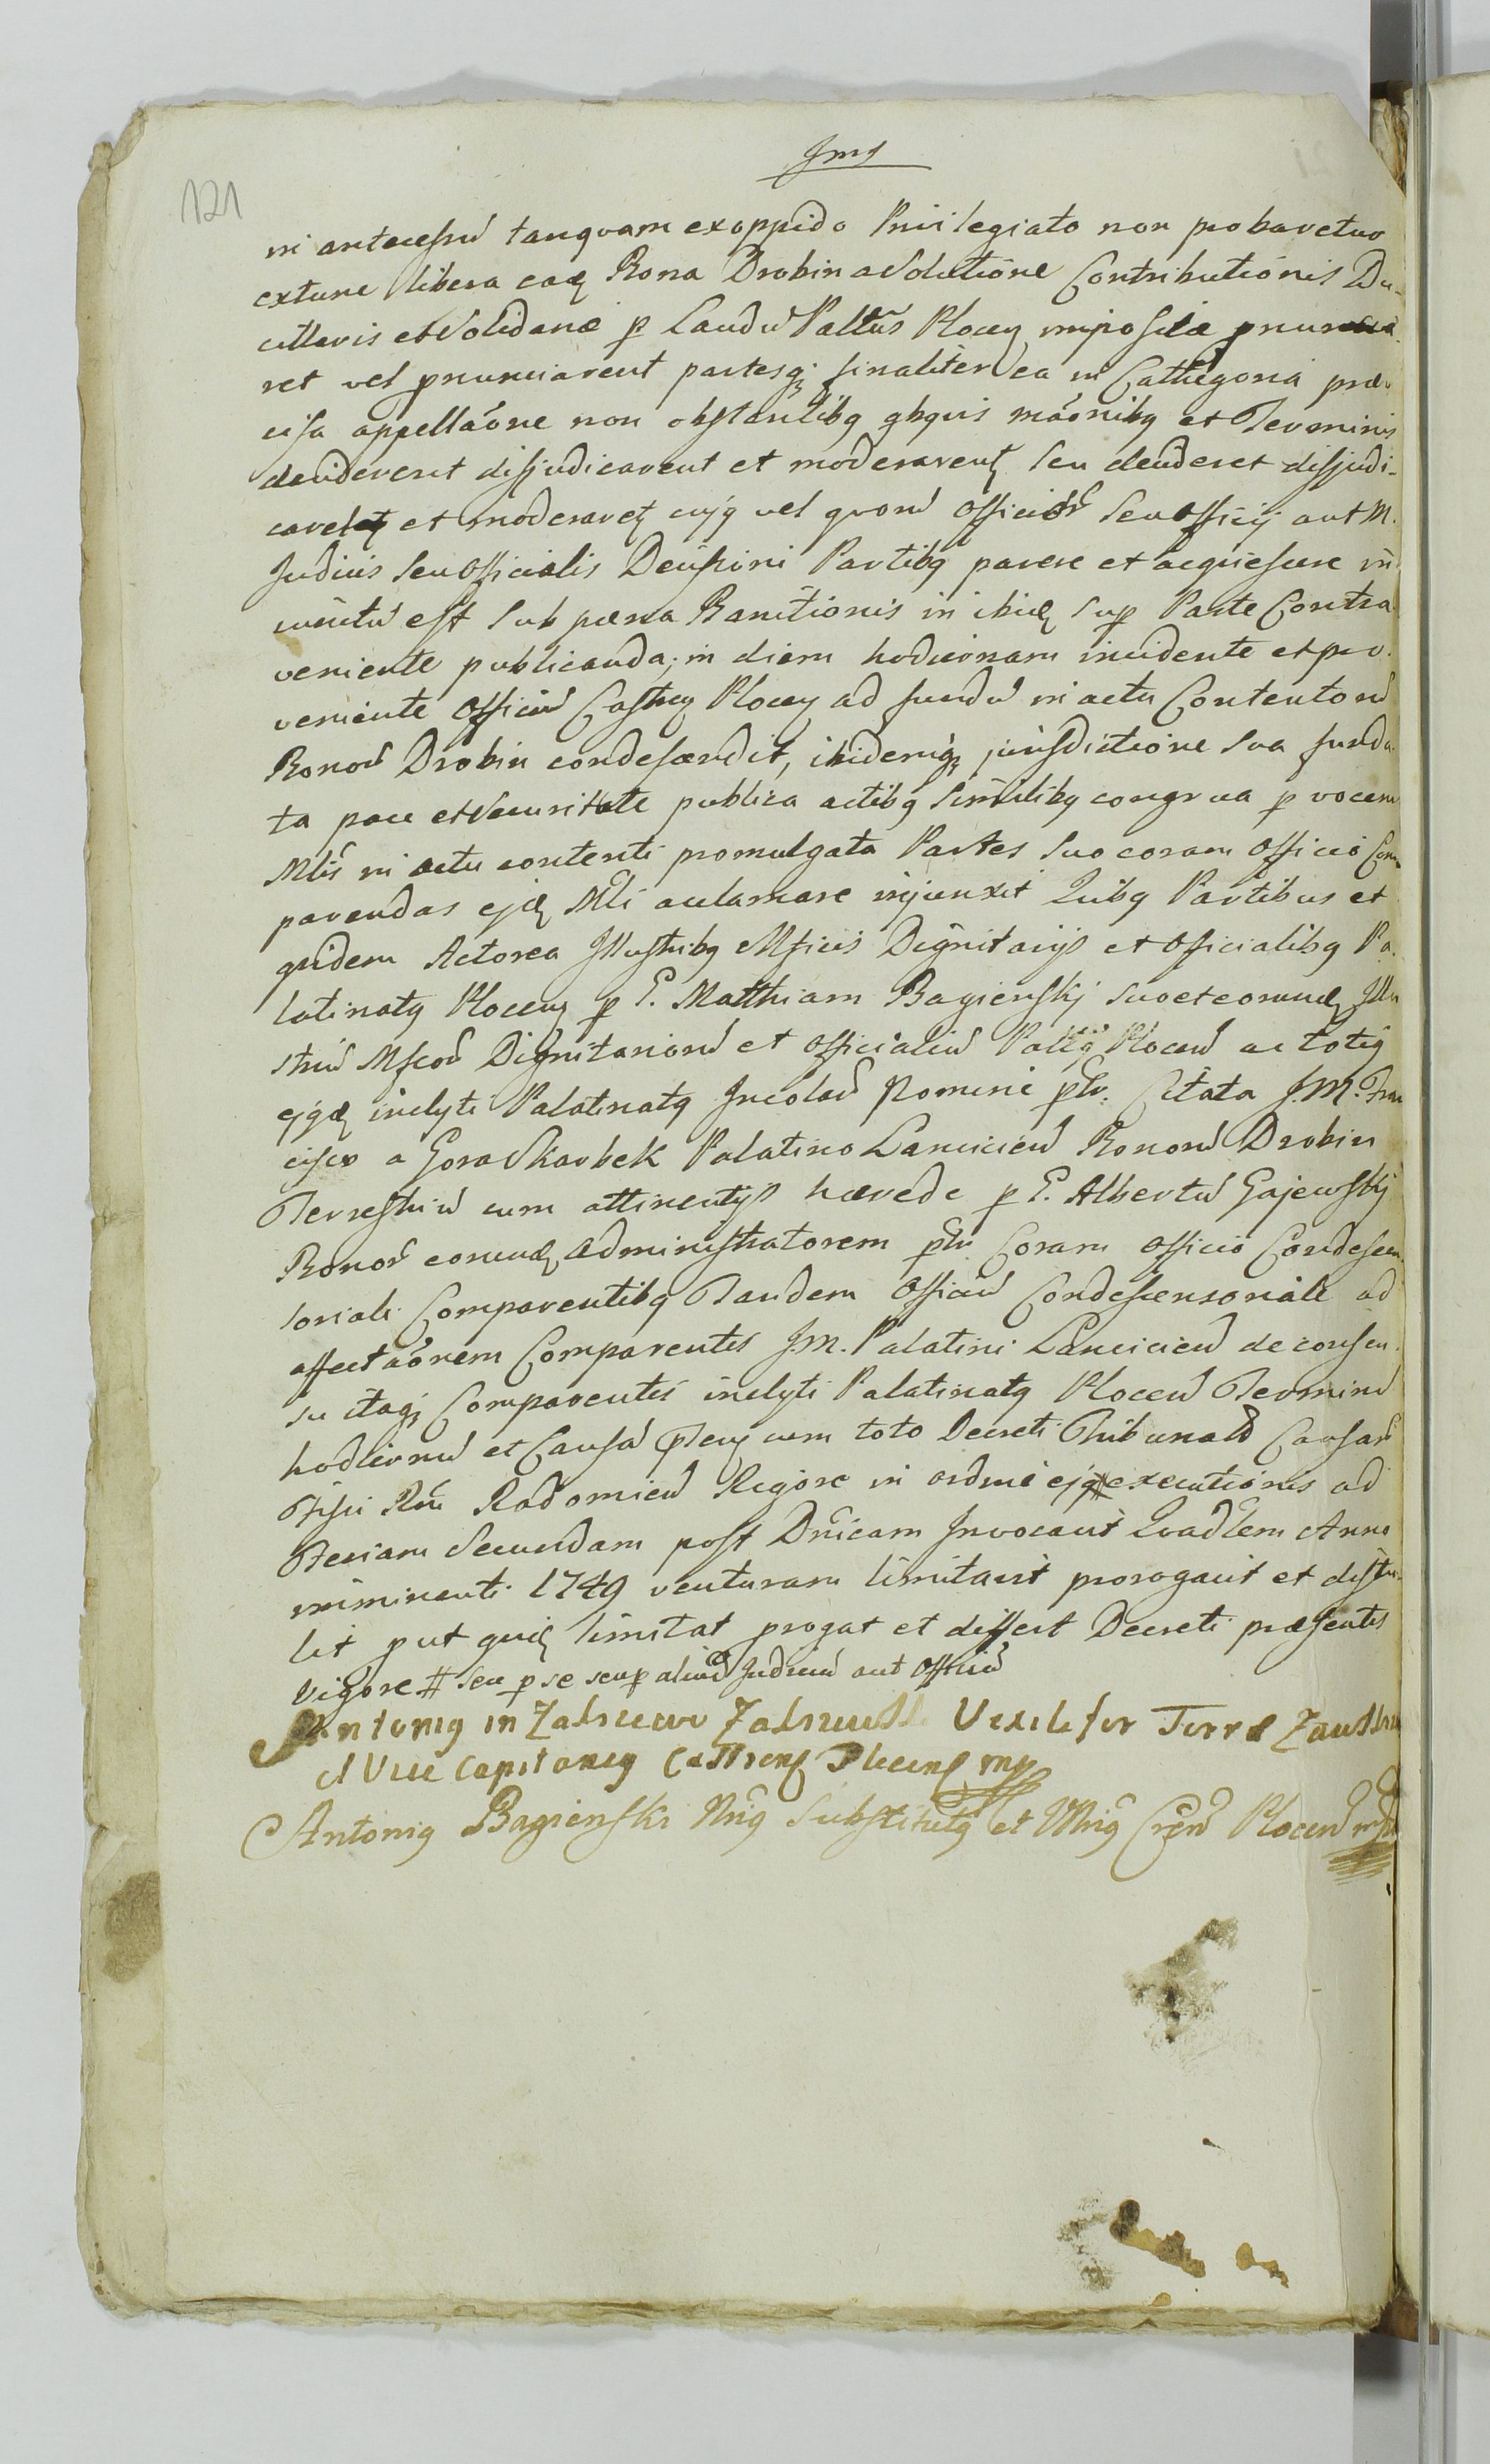 Jms
121
in antecessū tanquam ex oppido Privilegiato non probaretur
extunc libera eaq Bona Drobin a Solutione Contributionis Du-
cillaris et Solidanæ p Laudū Paltūs Plocen impositæ pnuncia-
ret vel pnunciarent partesq finaliter ea in Cathegoria præ-
cisa appellaōne non obstantibq qbqvis māonibq et Terminis
deciderent disjudicarent et moderarent seu decideret disjudi-
caret et moderaret cujq vel quorū Officiōr seu Officij aut M.
Judicis seu Officialis Decisioni Partibq parere et acquiescere in
iunctū est sub pæna Banitionis in ibid sup Parte Contra
veniente publicanda; in diem hodiernam incidente et pro-
veniente Officiū Castren Plocen ad fundū in actu Contentorū
Bonorū Drobin condescendit, ibidemq jurisdictione sua funda
ta pace et Securitate publica actibq similibq congrua p vocem
Mlīs in actu contenti promulgata Partes suo coram Officio Com
parendas ejdē Mlī acclamare injunxit Quibq Partibus et
quidem Actorea Illustribq Mficis Dignitarijs et Officialibq Pa-
latinatq Plocen p G. Matthiam Bagienskj suo et eorund Illu
striū Mficorū Dignitariorū et Officialiū Paltq Plocen ac totiq
ejqd inclyti Palatinatq Incolarū Nomine ptr. Citata J.M. Fran
cisco a Gora Skarbek Palatino Lancicien Bonorū Drobin
Terrestriū cum attinentijs hærede p G. Albertū Gajewskj
Bonor eorund Administratorem ptr Coram Officio Condescen
soriali Comparentibq Tandem Officiū Condescensoriale ad
affectaōnem Comparentis J.M. Palatini Lancicien de consen-
su itaq Comparentis inclyti Palatinatq Plocen Terminū
hodiernū et Causā pten cum toto Decreti Tribunalis Causar
Fisci Rni Radomien Rigore in ordine ejq # executionis ad
Feriam Secundam post Dnicam Invocavit Quadlem Anno
imminenti 1749 venturam limitavit prorogavit et distu-
lit put quid limitat progat et differt Decreti præsentis
Vigore # seu p se seu p aliud Judiciū aut Officiū
Antoniq in Zalszewo Vexilifer Terræ Zawskren
et Vice Capitaneq Castrens Plocens mp
Antoniq Bagienski Substitutq et Plocen mp